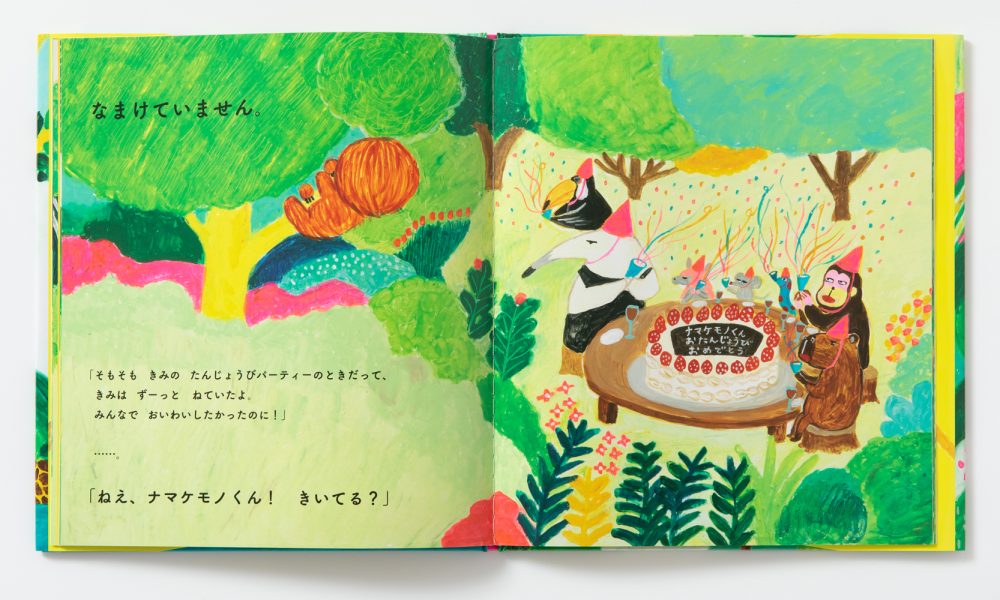 なまけていません。
「そもそも　きみの　たんじょうびパーティーのときだって、
きみは　ずーっと　ねていたよ。
みんなで　おいわいしたかったのに！」
……。
「ねえ、ナマケモノくん！　きいてる？」
ナマケモノくん
おたんじょうび
おめでとう